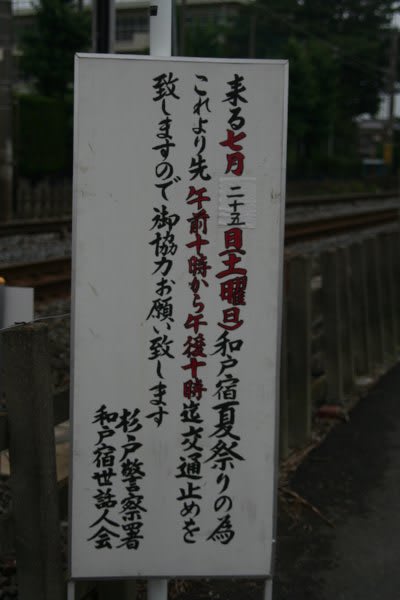 来る七月二十五日(土曜日)和戸宿夏祭りの為
これより先午前十時から午後十時迄交通止めを
致しますので御協力お願い致します
杉戸警察署
和戸宿世話人会